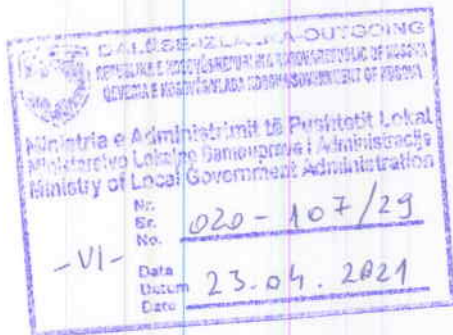 DALËSE-IZLAZNA-OUTGOING
REPUBLIKA E KOSOVËS-REPUBLIKA KOSOVA-REPUBLIC OF KOSOVA
QEVERIA E KOSOVËS-VLADA KOSOVA-GOVERNMENT OF KOSOVA
Ministria e Administrimit të Pushtetit Lokal
Ministarstvo Lokalne Samouprave i Administracije
Ministry of Local Government Administration
Nr.
Br.
No.
020-107/29
-VI-
Data
Datum
Date
23.04.2021